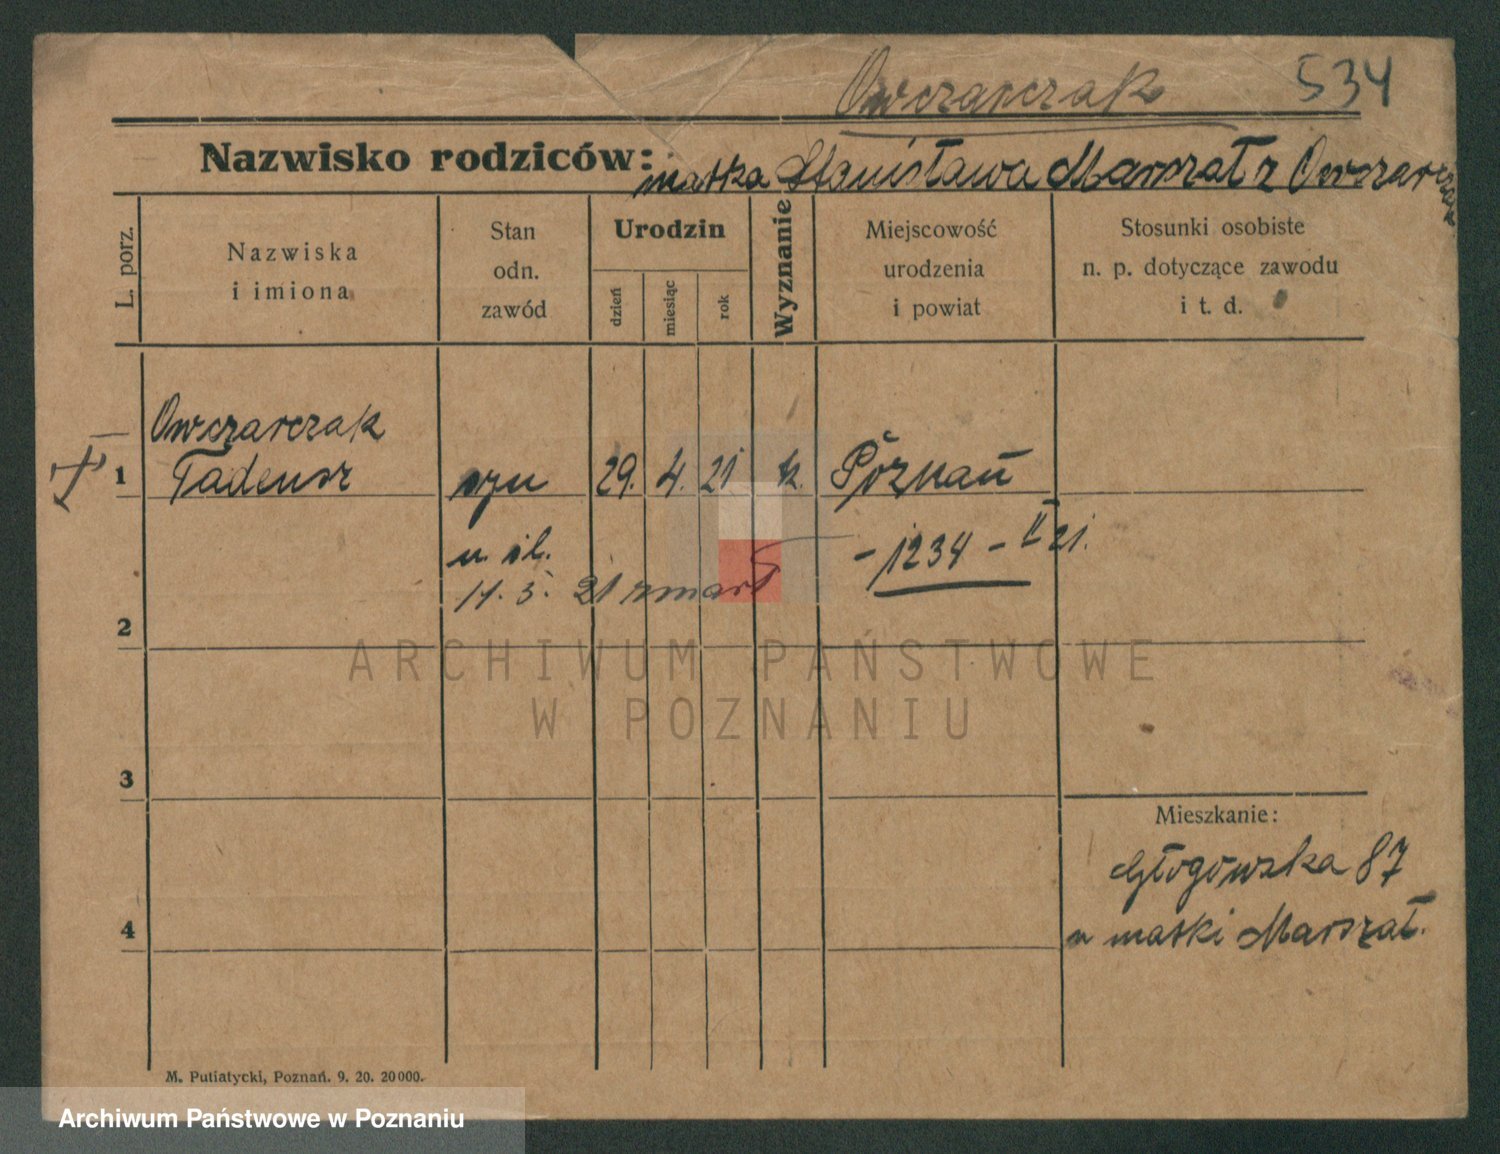 Owczarczak 534
Nazwisko rodziców: matka Stanisława Marszał z Owczarczak
L. porz.
Nazwiska
i imiona
Stan
odn.
zawód
Urodzin
dzień
miesiąc
rok
Wyznanie
Miejscowość
urodzenia
i powiat
Stosunki osobiste
n. p. dotyczące zawodu
i t. d.
Owczarczak
1 Tadeusz syn 29. 4. 21 k. Poznań
n. śl. - 1234 - II 21.
11. 5. 21 zmarł
2
ARCHIWUM PAŃSTWOWE
W POZNANIU
3
Mieszkanie:
Głogowska 87
4 u matki Marszał.
M. Putiatycki, Poznań. 9. 20. 20000.
Archiwum Państwowe w Poznaniu